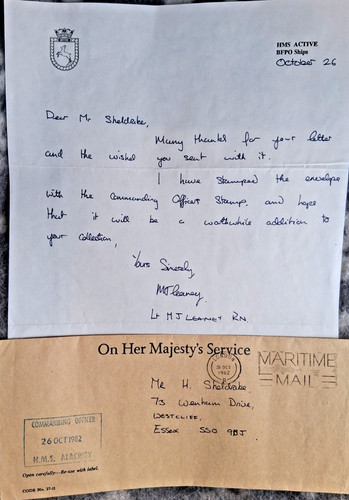 HMS ACTIVE
BFPO Ships
October 26
Dear Mr Sheldrake,
Many thanks for your letter
and the wishes you sent with it.
I have stamped the envelope
with the Commanding Officers Stamp, and hope
that it will be a worthwhile addition to
your collection,
Yours Sincerely,
MJ Leaney
Lt M J LEANEY RN
On Her Majesty's Service
LONDON
OCT
1982
MARITIME
MAIL
Mr H. Sheldrake
73 Wenham Drive,
WESTCLIFF,
Essex SS0 9BJ.
COMMANDING OFFICER
26 OCT 1982
H.M.S.
Open carefully—Re-use with label.
CODE No.